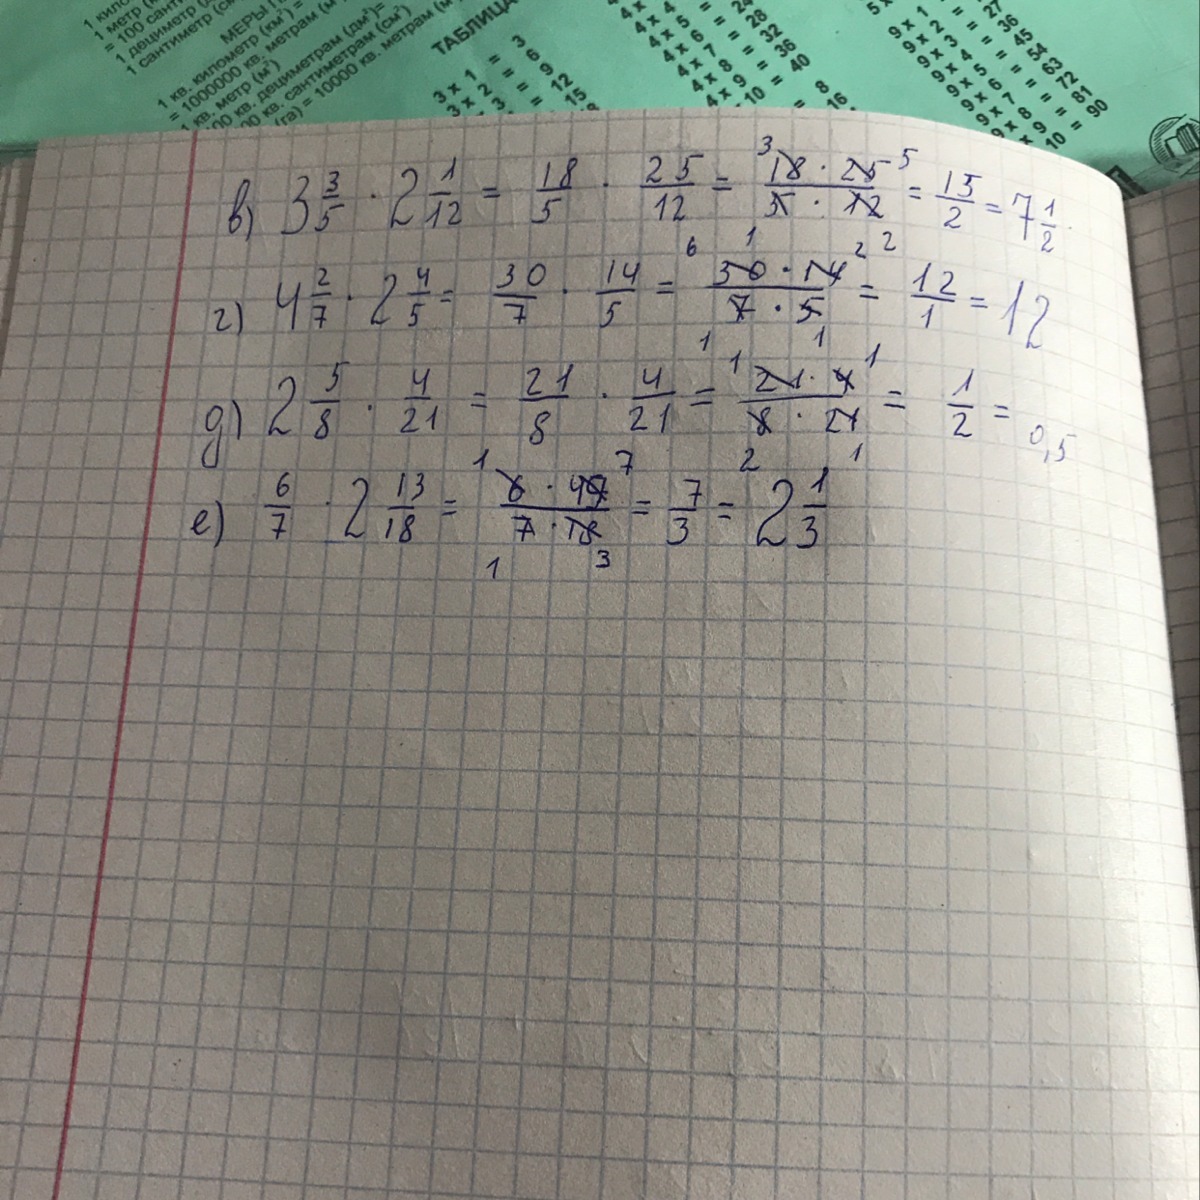 1 кило
1 метр (м
= 100 санти
1 дециметр (
1 сантиметр (см
МЕРЫ П
1 кв. километр (км²) =
= 1000000 кв. метрам (м
1 кв. метр (м²)
кв. дециметрам (дм²)=
кв. сантиметрам (см²)
(га) = 10000 кв. метрам (м
ТАБЛИЦА
3 x 1 = 3
3 x 2 = 6
3 = 9
= 12
15
4 x
4 x 4
4 x 5 = 24
4 x 6 = 28
4 x 7 = 32
4 x 8 = 36
4 x 9 = 40
10 =
= 8
16
5 x
9 x 1
9 x 2 = 27
9 x 3 = 36
9 x 4 = 45
9 x 5 = 54
9 x 6 = 63
9 x 7 = 72
9 x 8 = 81
9 x 9 = 90
10 =
в) 3 3/5 · 2 1/12 = 18/5 · 25/12 = 18 · 25 / 5 · 12 = 15/2 = 7 1/2
г) 4 2/7 · 2 4/5 = 30/7 · 14/5 = 30 · 14 / 7 · 5 = 12/1 = 12
д) 2 5/8 · 4/21 = 21/8 · 4/21 = 21 · 4 / 8 · 21 = 1/2 = 0,5
е) 6/7 · 2 13/18 = 6 · 49 / 7 · 18 = 7/3 = 2 1/3